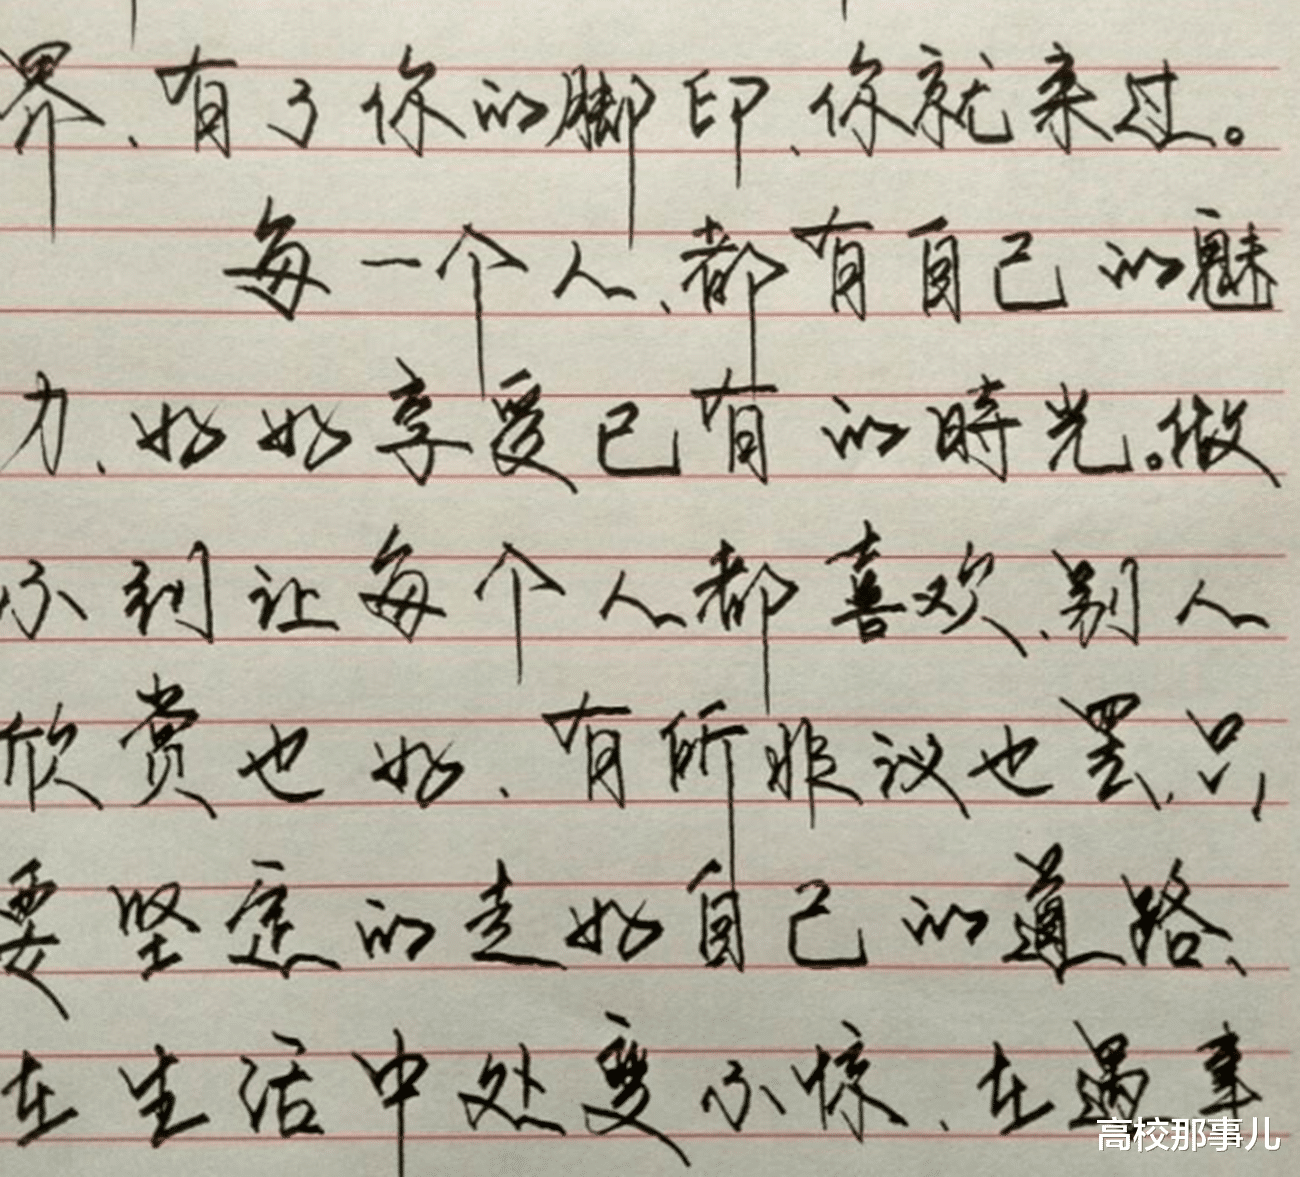 界、有了你的脚印、你就来过。
每一个人、都有自己的魅
力、好好享受已有的時光。做
不到让每个人都喜欢、别人
欣赏也好、有所非议也罢、只
要坚定的走好自己的道路、
在生活中处变不惊、在遇事
高校那事儿